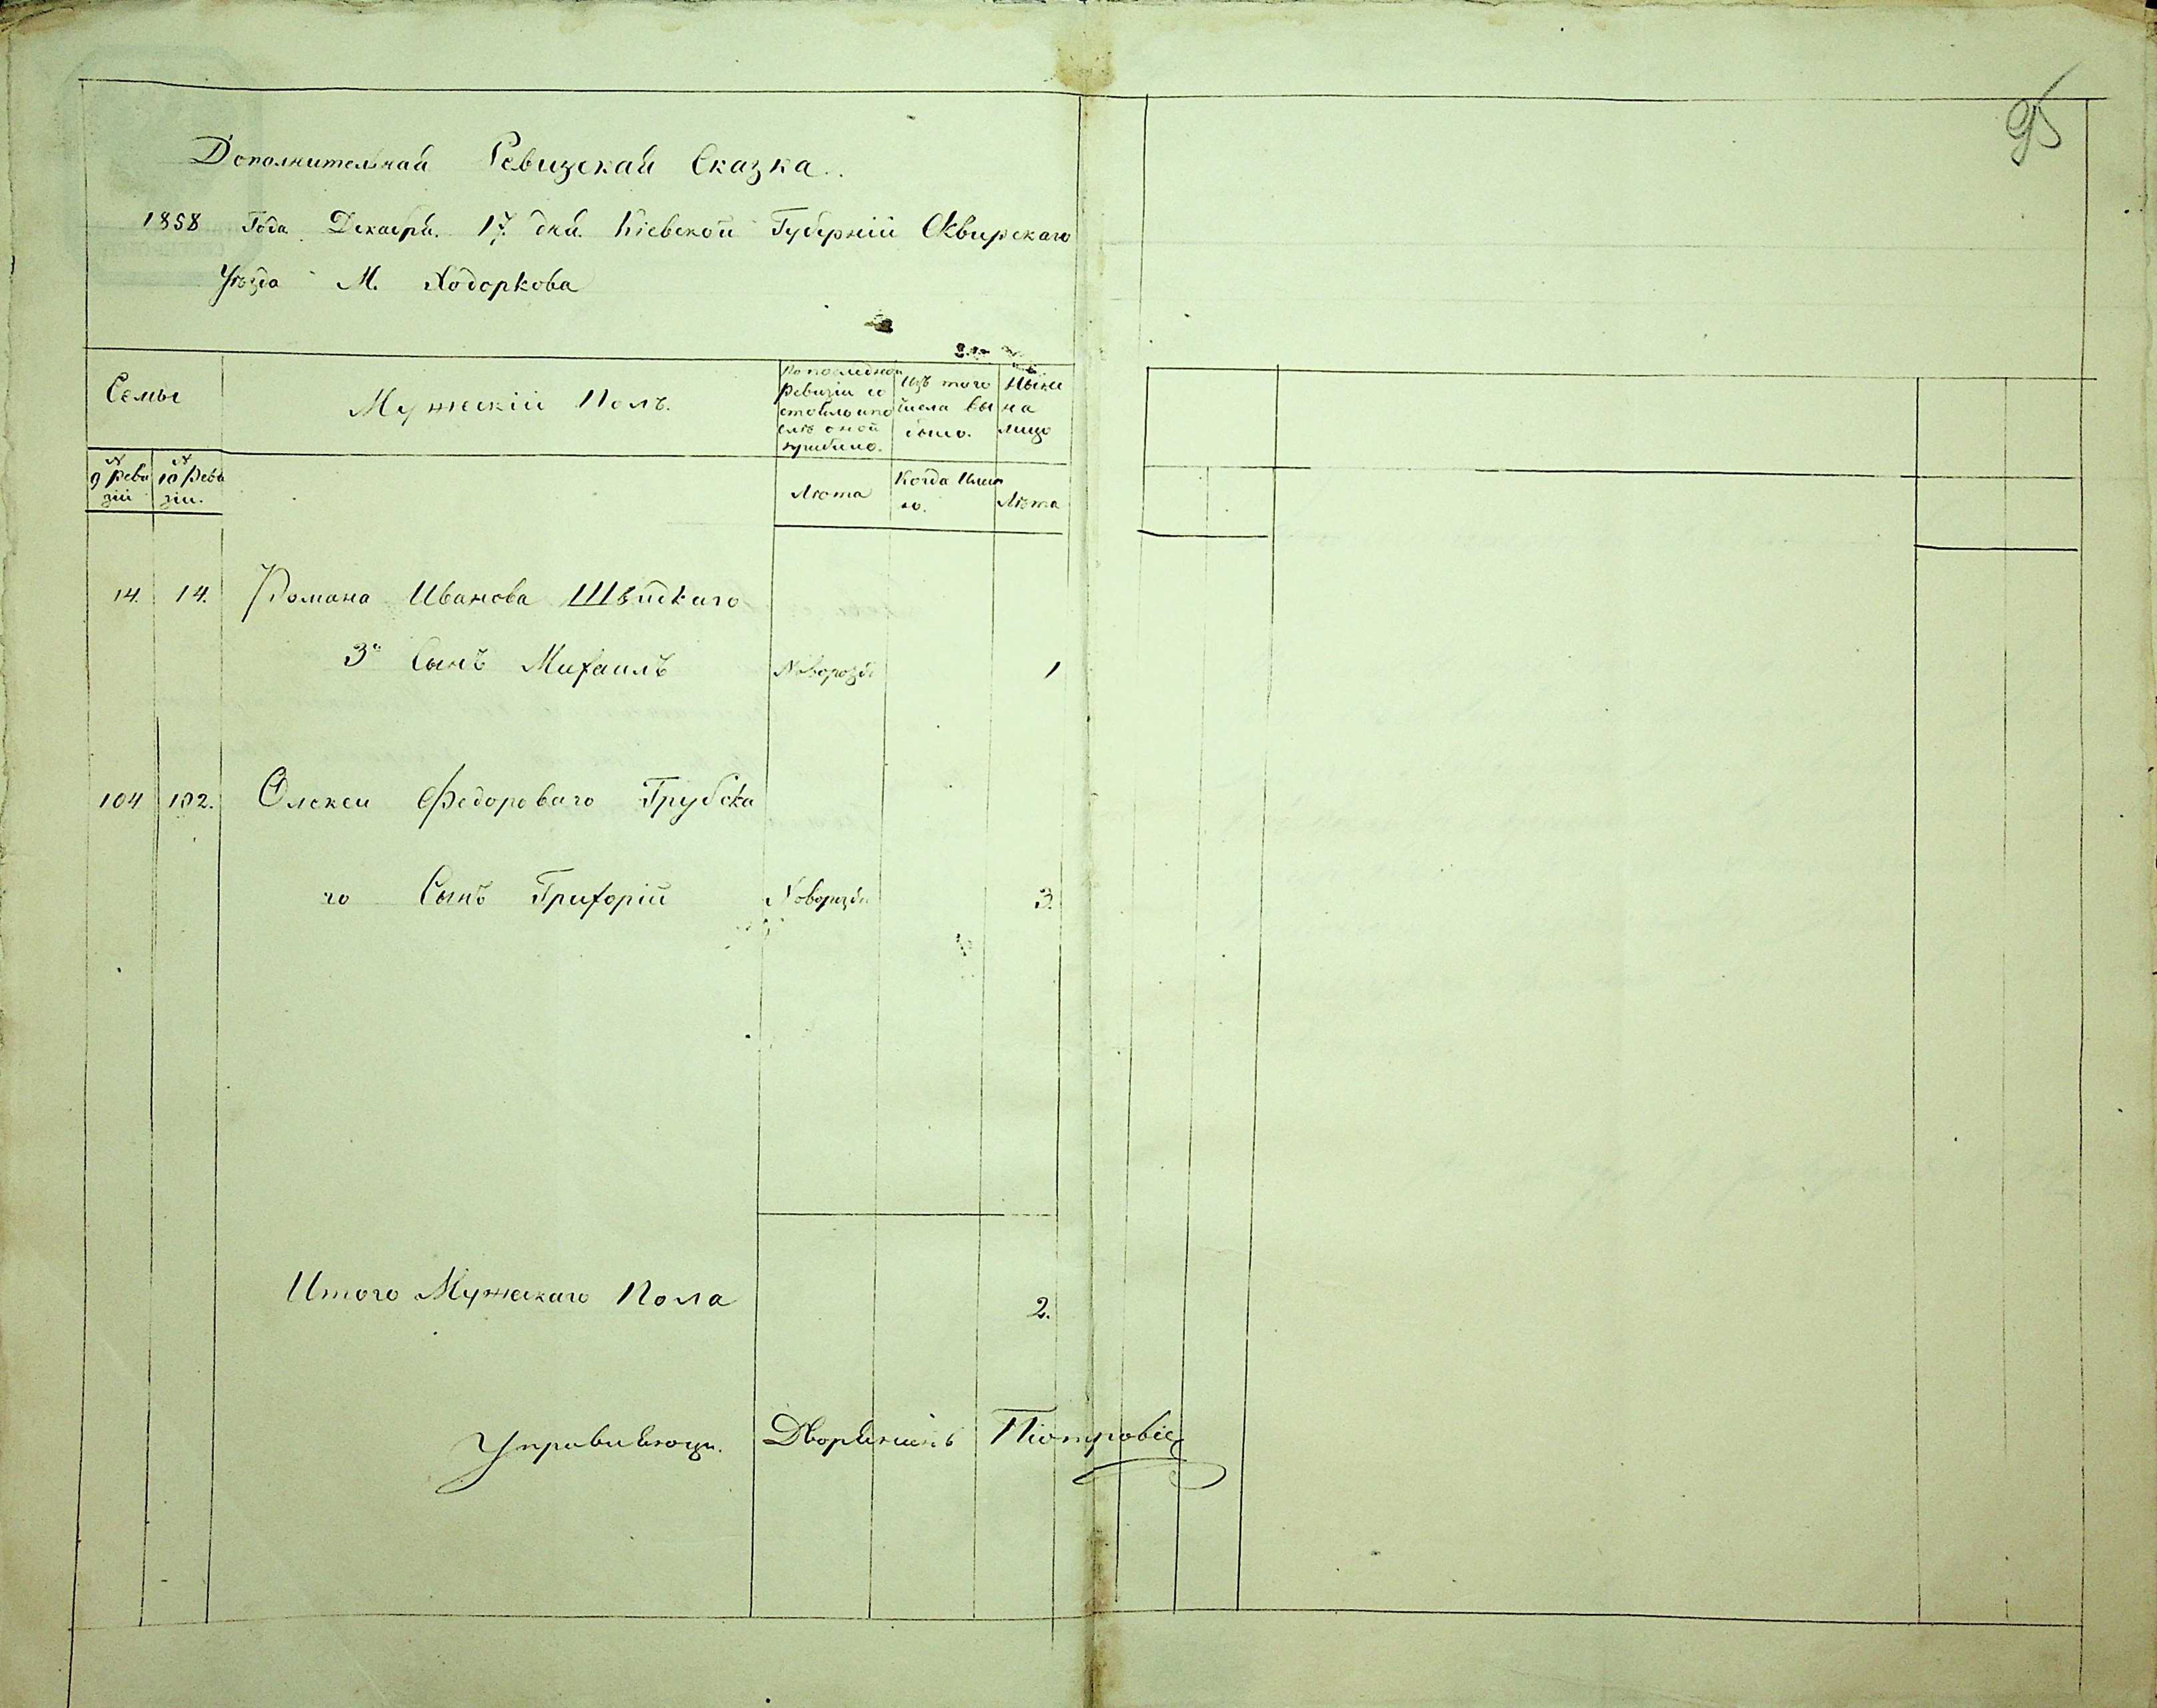 95
Дополнительнай Ревизскай Сказка.
1858 Года Декабрй. 17. днй. Кіевской Губерніи Сквирскаго
Уѣзда М. Ходоркова
Семьи
Мужескій Полъ.
По последней ревизіи состояло и послѣ оной прибыло.
Изъ того числа выбыло.
Ныне на лицо
№ 9 реви зіи
№ 10 реви зіи.
Лѣта
Когда Имен но.
Лѣта
14. 14. Романа Иванова Швидкаго
3й Сынъ Михаилъ Новорозд 1
104 102. Олексея Федороваго Грубска
го Сынъ Григорій Новорозд 3.
Итого Мужескаго Пола 2.
Управляющи. Дворянинъ Піотровіс